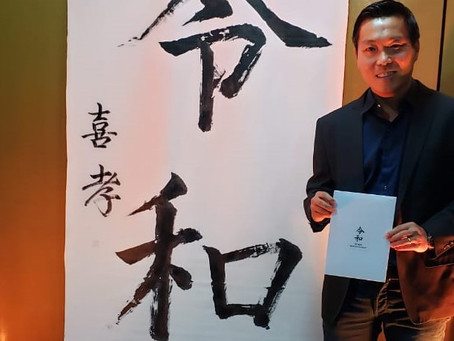 令
和
喜
孝
令
和